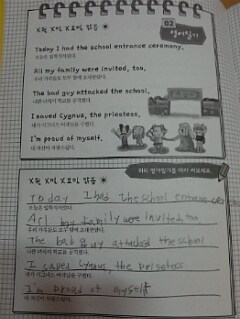 X월 X일 X요일 맑음
02
영어일기
Today I had the school entrance ceremony.
오늘은 입학식이었다.
All my family were invited, too.
우리 가족들도 모두 함께 초대받았다.
The bad guy attacked the school.
나쁜 녀석이 학교를 공격했다.
I saved Cygnus, the priestess.
내가 시그너스 여제님을 구했다.
I'm proud of myself.
내 자신이 자랑스럽다.
따라 써보세요.
X월 X일 X요일 맑음
Today I had the school entrance
오늘은 입학식이었다.
All my family were invited, too.
우리 가족들도 모두 함께 초대받았다.
The bad guy attacked the school
나쁜 녀석이 학교를 공격했다.
I saved Cygnus, the priestess
내가 시그너스 여제님을 구했다.
I'm proud of myself
내 자신이 자랑스럽다.